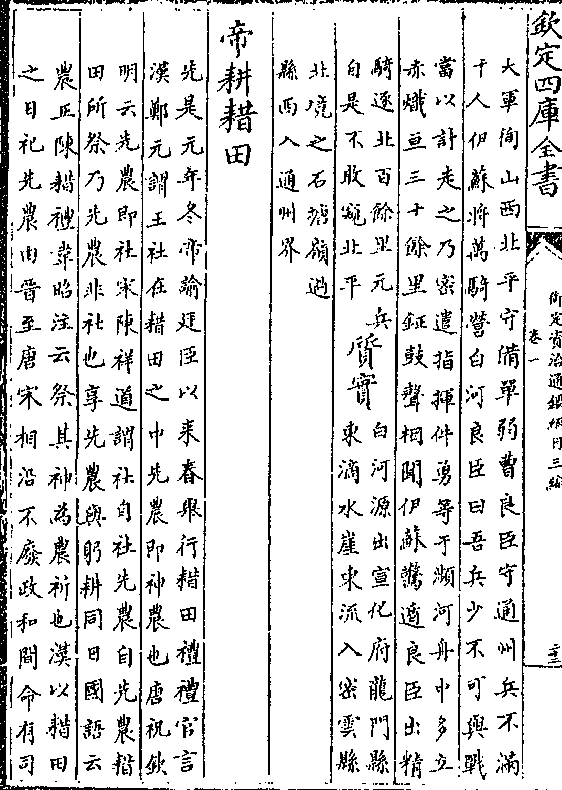 欽定四庫全書
御定資治通鑑綱目三編
卷一
二十三
大軍徇山西北平守備單弱曹良臣守通州兵不滿
千人伊蘇將萬騎營白河良臣曰吾兵少不可與戰
當以計走之乃密遣指揮仵勇等于瀕河舟中多立
赤幟亘三十餘里鉦鼓聲相聞伊蘇驚遁良臣出精
騎逐北百餘里元兵
自是不敢窺北平
質實
白河源出宣化府龍門縣
東滴水崖東流入密雲縣
北境之石塘嶺過
縣西入通州界
帝耕耤田
先是元年冬帝諭廷臣以来春舉行耤田禮禮官言
漢鄭元謂王社在耤田之中先農即神農也唐祝欽
明云先農即社宋陳祥道謂社自社先農自先農耤
田所祭乃先農非社也享先農與躬耕同日國語云
農正陳耤禮韋昭注云祭其神為農祈也漢以耤田
之日祀先農由晉至唐宋相沿不廢政和間命有司